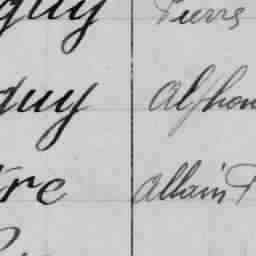 guy Pierre
guy Alphon
re Allain P